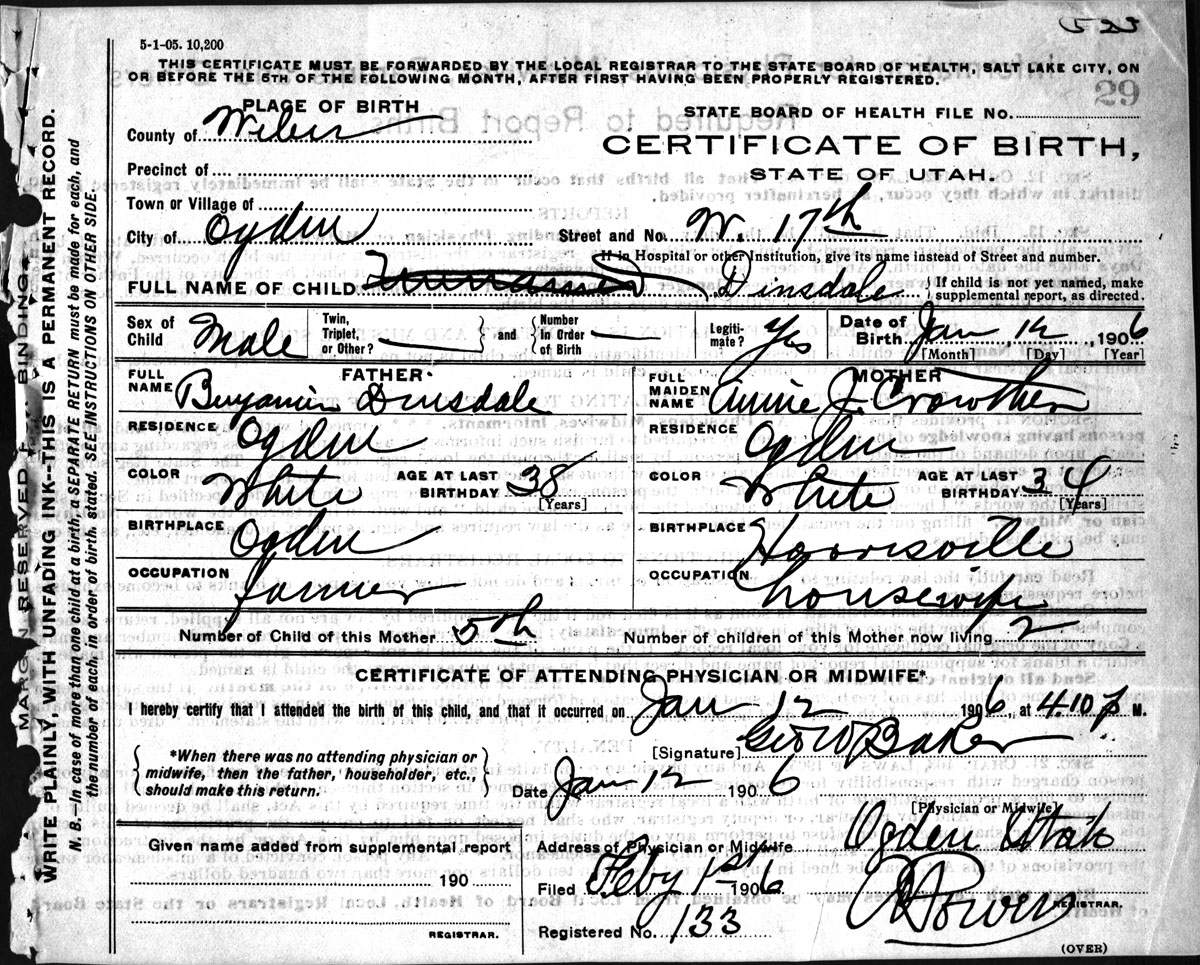 5-1-05. 10,200
THIS CERTIFICATE MUST BE FORWARDED BY THE LOCAL REGISTRAR TO THE STATE BOARD OF HEALTH, SALT LAKE CITY, ON
OR BEFORE THE 5TH OF THE FOLLOWING MONTH, AFTER FIRST HAVING BEEN PROPERLY REGISTERED.
29
PLACE OF BIRTH
STATE BOARD OF HEALTH FILE No.
County of Weber
CERTIFICATE OF BIRTH,
STATE OF UTAH.
Precinct of
Town or Village of
City of Ogden Street and No. W. 17th
If in Hospital or other Institution, give its name instead of Street and number.
FULL NAME OF CHILD Dinsdale { If child is not yet named, make
supplemental report, as directed.
Sex of Child Male Twin, Triplet, or Other? — } and { Number In Order of Birth — Legiti-mate? Yes Date of Birth Jan 12, 1906
[Month] [Day] [Year]
FATHER MOTHER
FULL NAME Benjamin Dinsdale FULL MAIDEN NAME Annie J. Crowther
RESIDENCE Ogden RESIDENCE Ogden
COLOR White AGE AT LAST BIRTHDAY 38 [Years] COLOR White AGE AT LAST BIRTHDAY 34 [Years]
BIRTHPLACE Ogden BIRTHPLACE Harrisville
OCCUPATION farmer OCCUPATION housewife
Number of Child of this Mother 5th Number of children of this Mother now living 2
CERTIFICATE OF ATTENDING PHYSICIAN OR MIDWIFE*
I hereby certify that I attended the birth of this child, and that it occurred on Jan 12 1906, at 4.10 p M.
*When there was no attending physician or
midwife, then the father, householder, etc.,
should make this return.
[Signature] Geo W Baker
Date Jan 12 1906
[Physician or Midwife]
Given name added from supplemental report
Address of Physician or Midwife Ogden Utah
190
Filed Feby 1st 1906
REGISTRAR.
Registered No. 133
REGISTRAR.
(OVER)
MARGIN RESERVED FOR BINDING
WRITE PLAINLY, WITH UNFADING INK--THIS IS A PERMANENT RECORD.
N. B.—In case of more than one child at a birth, a SEPARATE RETURN must be made for each, and
the number of each, in order of birth, stated. SEE INSTRUCTIONS ON OTHER SIDE.